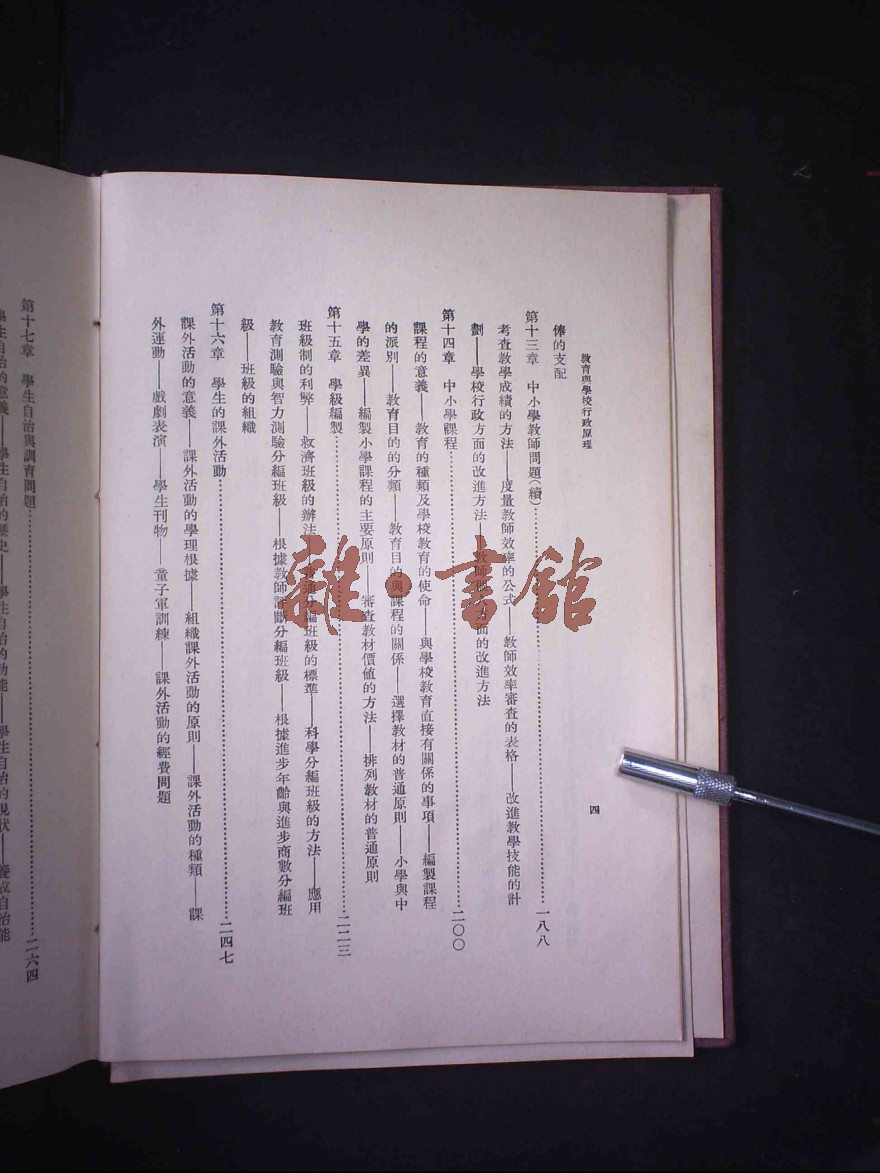 教育與學校行政原理
四
俸的支配
第十三章　中小學教師問題(續)……一八八
考查教學成績的方法——度量教師效率的公式——教師效率審查的表格——改進教學技能的計
劃——學校行政方面的改進方法——教師個人方面的改進方法
第十四章　中小學課程……二〇〇
課程的意義——教育的種類及學校教育的使命——與學校教育直接有關係的事項——編製課程
的派別——教育目的的分類——教育目的與課程的關係——選擇教材的普通原則——小學與中
學的差異——編製小學課程的主要原則——審查教材價值的方法——排列教材的普通原則
第十五章　學級編製……二二三
班級制的利弊——救濟班級的辦法——普通分編班級的標準——科學分編班級的方法——應用
教育測驗與智力測驗分編班級——根據教師評斷分編班級——根據進步年齡與進步商數分編班
級——班級的組織
第十六章　學生的課外活動……二四七
課外活動的意義——課外活動的學理根據——組織課外活動的原則——課外活動的種類——課
外運動——戲劇表演——學生刊物——童子軍訓練——課外活動的經費問題
第十七章　學生自治與訓育問題……二六四
學生自治的意義——學生自治的歷史——學生自治的功能——學生自治的現狀——養成自治能
雜·書館